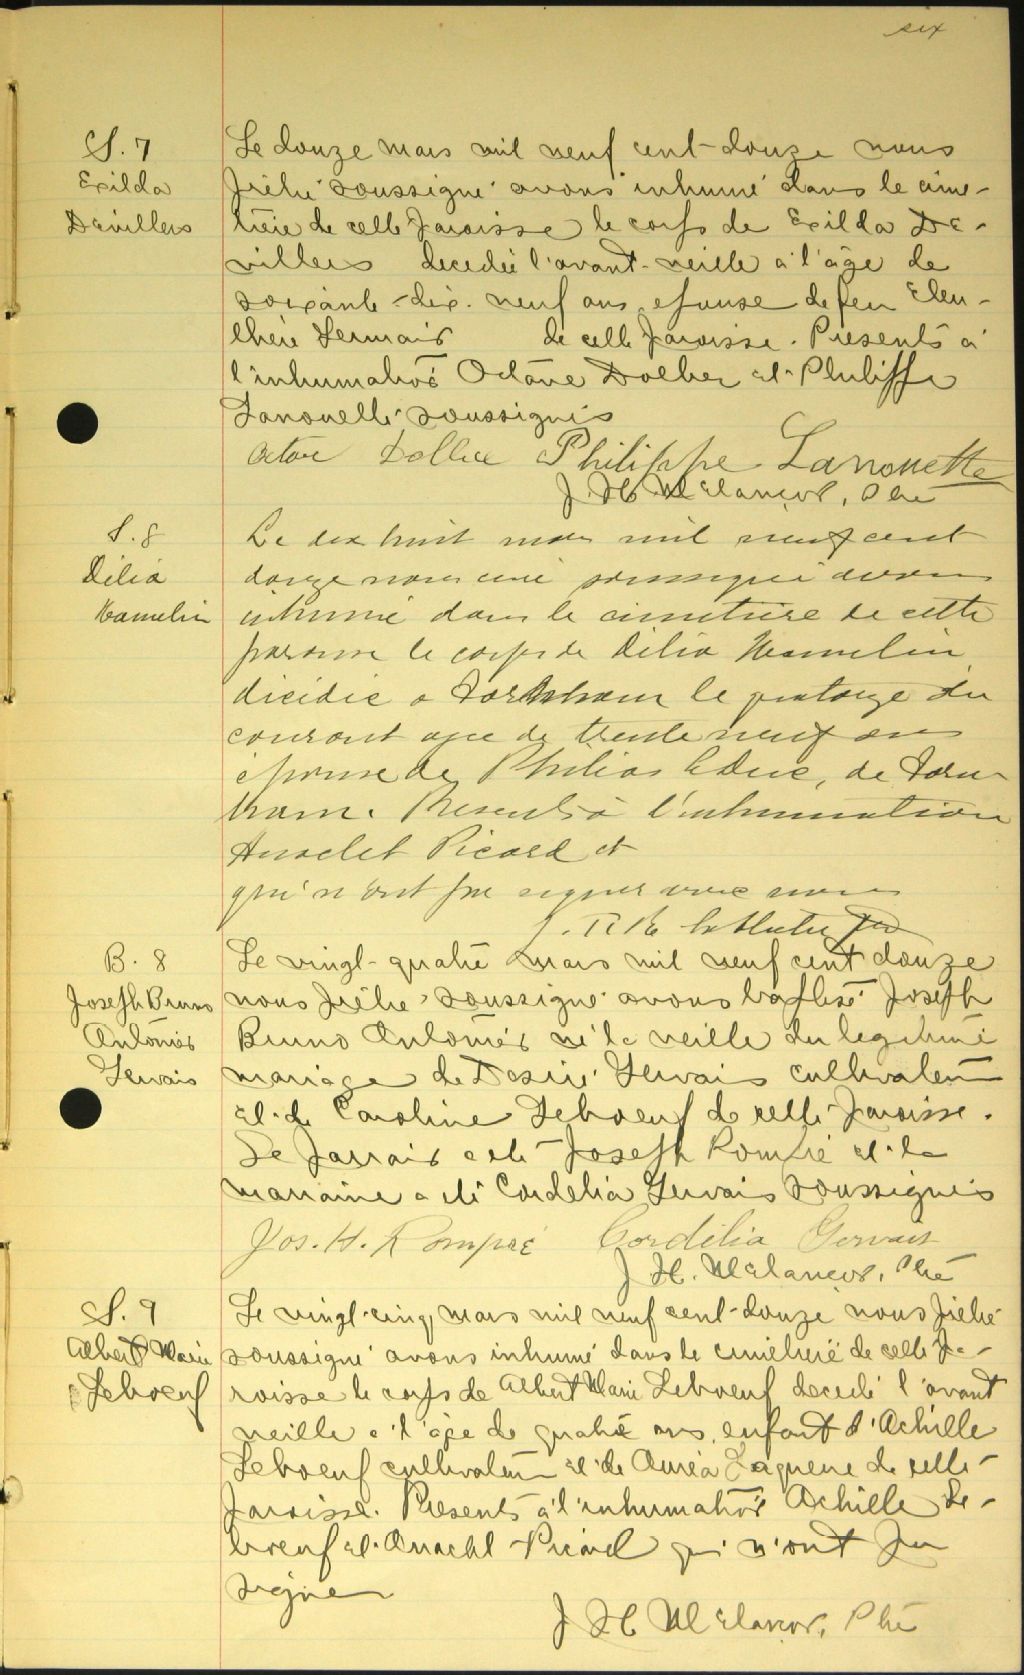 six
S. 7
Exilda
Devillers
Le douze mars mil neuf cent-douze nous
prêtre soussigné avons inhumé dans le cime-
tière de cette paroisse le corps de Exilda De-
villers decedée l'avant-veille à l'âge de
soixante-dix-neuf ans, epouse de feu Eleu-
thère de cette paroisse. Présents à
l'inhumation Octave et Philippe
Lanouette soussignés
Octave Philippe Lanouette
J. H. Melançon, Ptre
S. 8
Délia
Hamelin
Le dix huit mars mil neuf cent
douze nous curé soussigné avons
inhumé dans le cimetière de cette
paroisse le corps de Délia Hamelin
décédée a Farnham le quatorze du
courant agee de trente neuf ans
épouse de Philias Leduc, de Farn-
ham. Presents à l'inhumation
Anaclet Picard et
qui n'ont pu signer avec nous
B. 8
Joseph Bruno
Antonio
Gervais
Le vingt-quatre mars mil neuf cent douze
nous prêtre soussigné avons baptisé Joseph
Bruno Antonio né la veille du légitime
mariage de Désiré Gervais cultivateur
et de Caroline Leboeuf de cette paroisse.
Le parrain a été Joseph Rompré et la
marraine a été Cordelia Gervais soussignés
Jos. H. Rompré Cordélia Gervais
J. H. Melançon, Ptre
S. 9
Albert Marie
Leboeuf
Le vingt-cinq mars mil neuf cent-douze nous prêtre
soussigné avons inhumé dans le cimetière de cette pa-
roisse le corps de Albert Marie Leboeuf decedé l'avant
veille à l'âge de quatre ans, enfant d'Achille
Leboeuf cultivateur et de Auréa de cette
paroisse. Présents à l'inhumation Achille Le-
boeuf et Anaclet Picard qui n'ont pu
signer
J. H. Melançon, Ptre